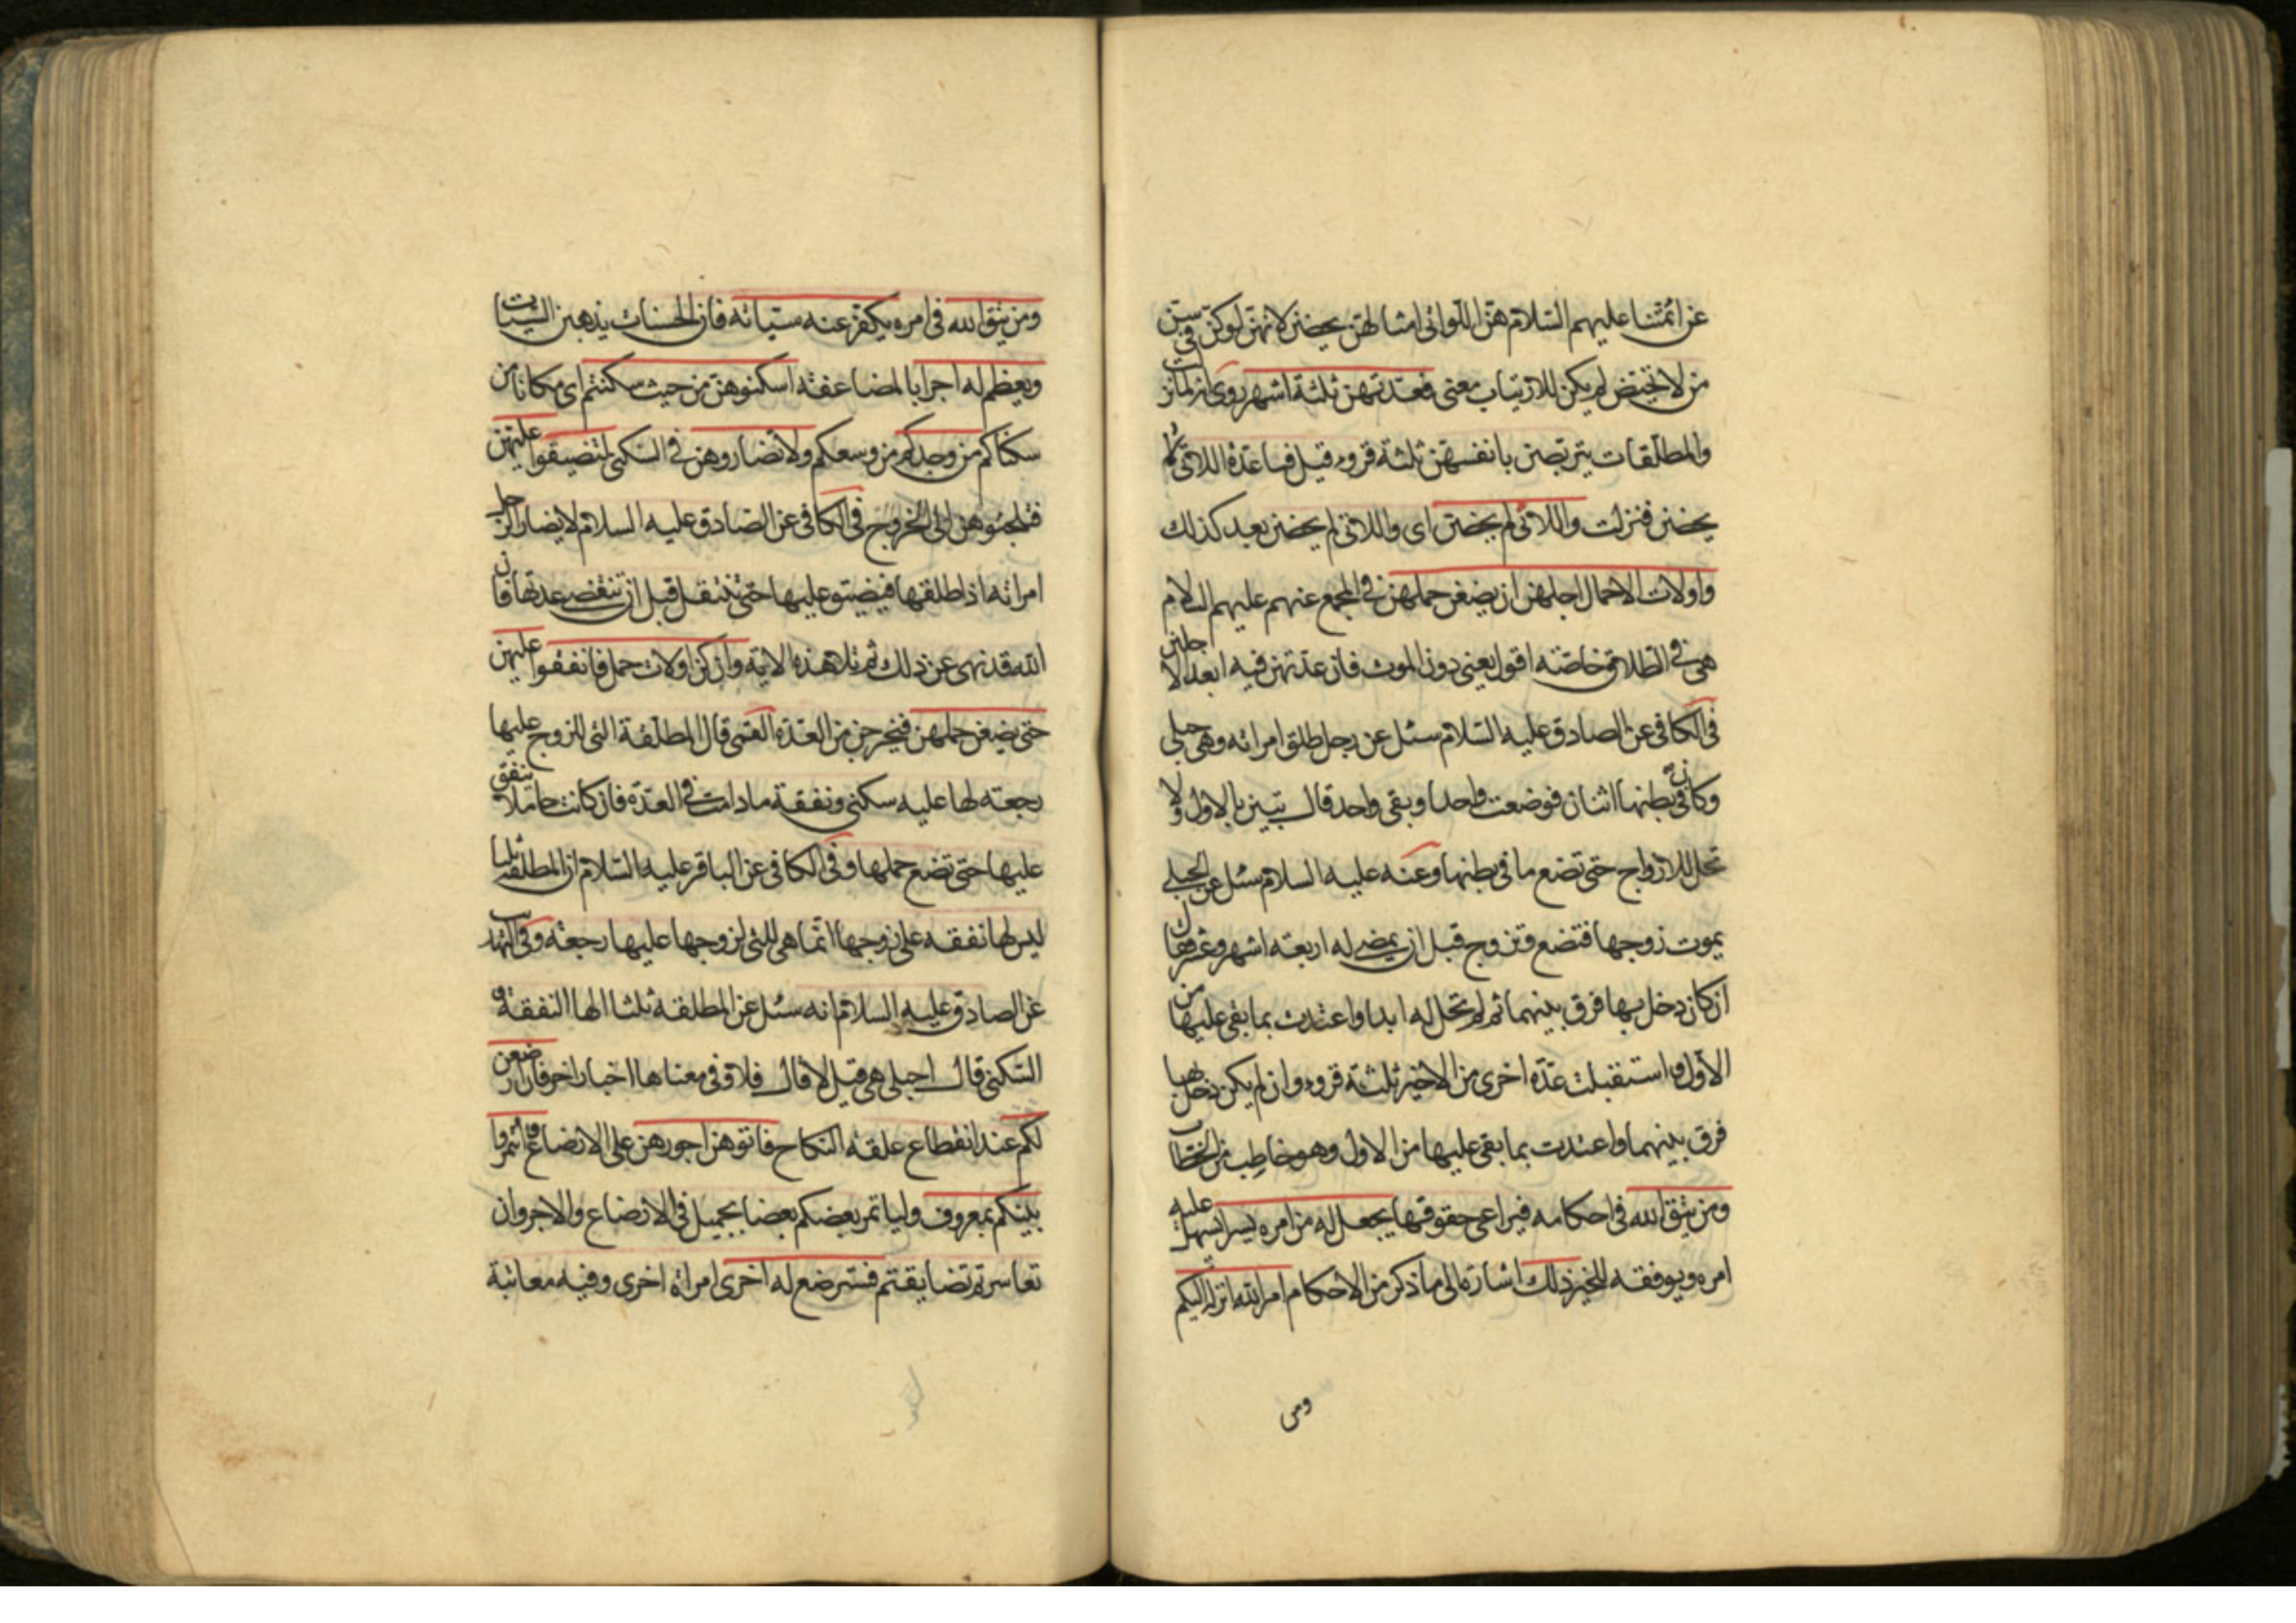 عن ائمتنا عليهم السلام هن اللواتی امثالهن يحضن لانهن لو كن فی سن
من لا تحيض لم يكن للارتياب معنی فعدتهن ثلثة اشهر روی انه لما نزلت
والمطلقات يتربصن بانفسهن ثلثة قروء قيل فما عدة اللاتی لم
يحضن فنزلت واللائی لم يحضن ای واللاتی لم يحضن بعد كذلك
واولات الاحمال اجلهن ان يضعن حملهن فی المجمع عنهم عليهم السلام
هی فی الطلاق خاصة اقول يعنی دون الموت فان عدتهن فيه ابعد الاجلين
فی الكافی عن الصادق عليه السلام سئل عن رجل طلق امراته وهی حبلی
وكان فی بطنها اثنان فوضعت واحدا وبقی واحد قال تبين بالاول ولا
تحل للازواج حتی تضع ما فی بطنها وعنه عليه السلام سئل عن الحبلی
يموت زوجها فتضع وتزوج قبل ان يمضی له اربعة اشهر وعشر فقال
ان كان دخل بها فرق بينهما ثم لم تحل له ابدا واعتدت بما بقی عليها من
الاول واستقبلت عدة اخری من الاخير ثلثة قروء وان لم يكن دخل بها
فرق بينهما واعتدت بما بقی عليها من الاول وهو خاطب من الخطاب
ومن يتق الله فی احكامه فيراعی حقوقها يجعل له من امره يسرا يسهل عليه
امره ويوفقه للخير ذلك اشارة الی ما ذكر من الاحكام امر الله انزله اليكم
ومن
ومن يتق الله فی امره يكفر عنه سيئاته فان الحسنات يذهبن السيئات
ويعظم له اجرا بالمضاعفة اسكنوهن من حيث سكنتم ای مكانا من
سكناكم من وجدكم من وسعكم ولا تضاروهن فی السكنی لتضيقوا عليهن
فتلجئوهن الی الخروج فی الكافی عن الصادق عليه السلام لا يضار الرجل
امراته اذا طلقها فيضيق عليها حتی تنتقل قبل ان تنقضی عدتها فان
الله قد نهی عن ذلك ثم تلا هذه الاية وان كن اولات حمل فانفقوا عليهن
حتی يضعن حملهن فيخرجن من العدة القمی قال المطلقة التی للزوج عليها
رجعة لها عليه سكنی ونفقة ما دامت فی العدة فان كانت حاملا ينفق
عليها حتی تضع حملها وفی الكافی عن الباقر عليه السلام ان المطلقة ثلثا
ليس لها نفقة علی زوجها انما هی للتی لزوجها عليها رجعة وفی التهذيب
عن الصادق عليه السلام انه سئل عن المطلقة ثلثا الها النفقة و
السكنی قال احبلی هی قيل لا قال فلا وفی معناها اخبار اخر فان ارضعن
لكم عند انقطاع علقة النكاح فاتوهن اجورهن علی الارضاع واتمروا
بينكم بمعروف وليأتمر بعضكم بعضا بجميل فی الارضاع والاجر وان
تعاسرتم تضايقتم فسترضع له اخری امراة اخری وفيه معاتبة